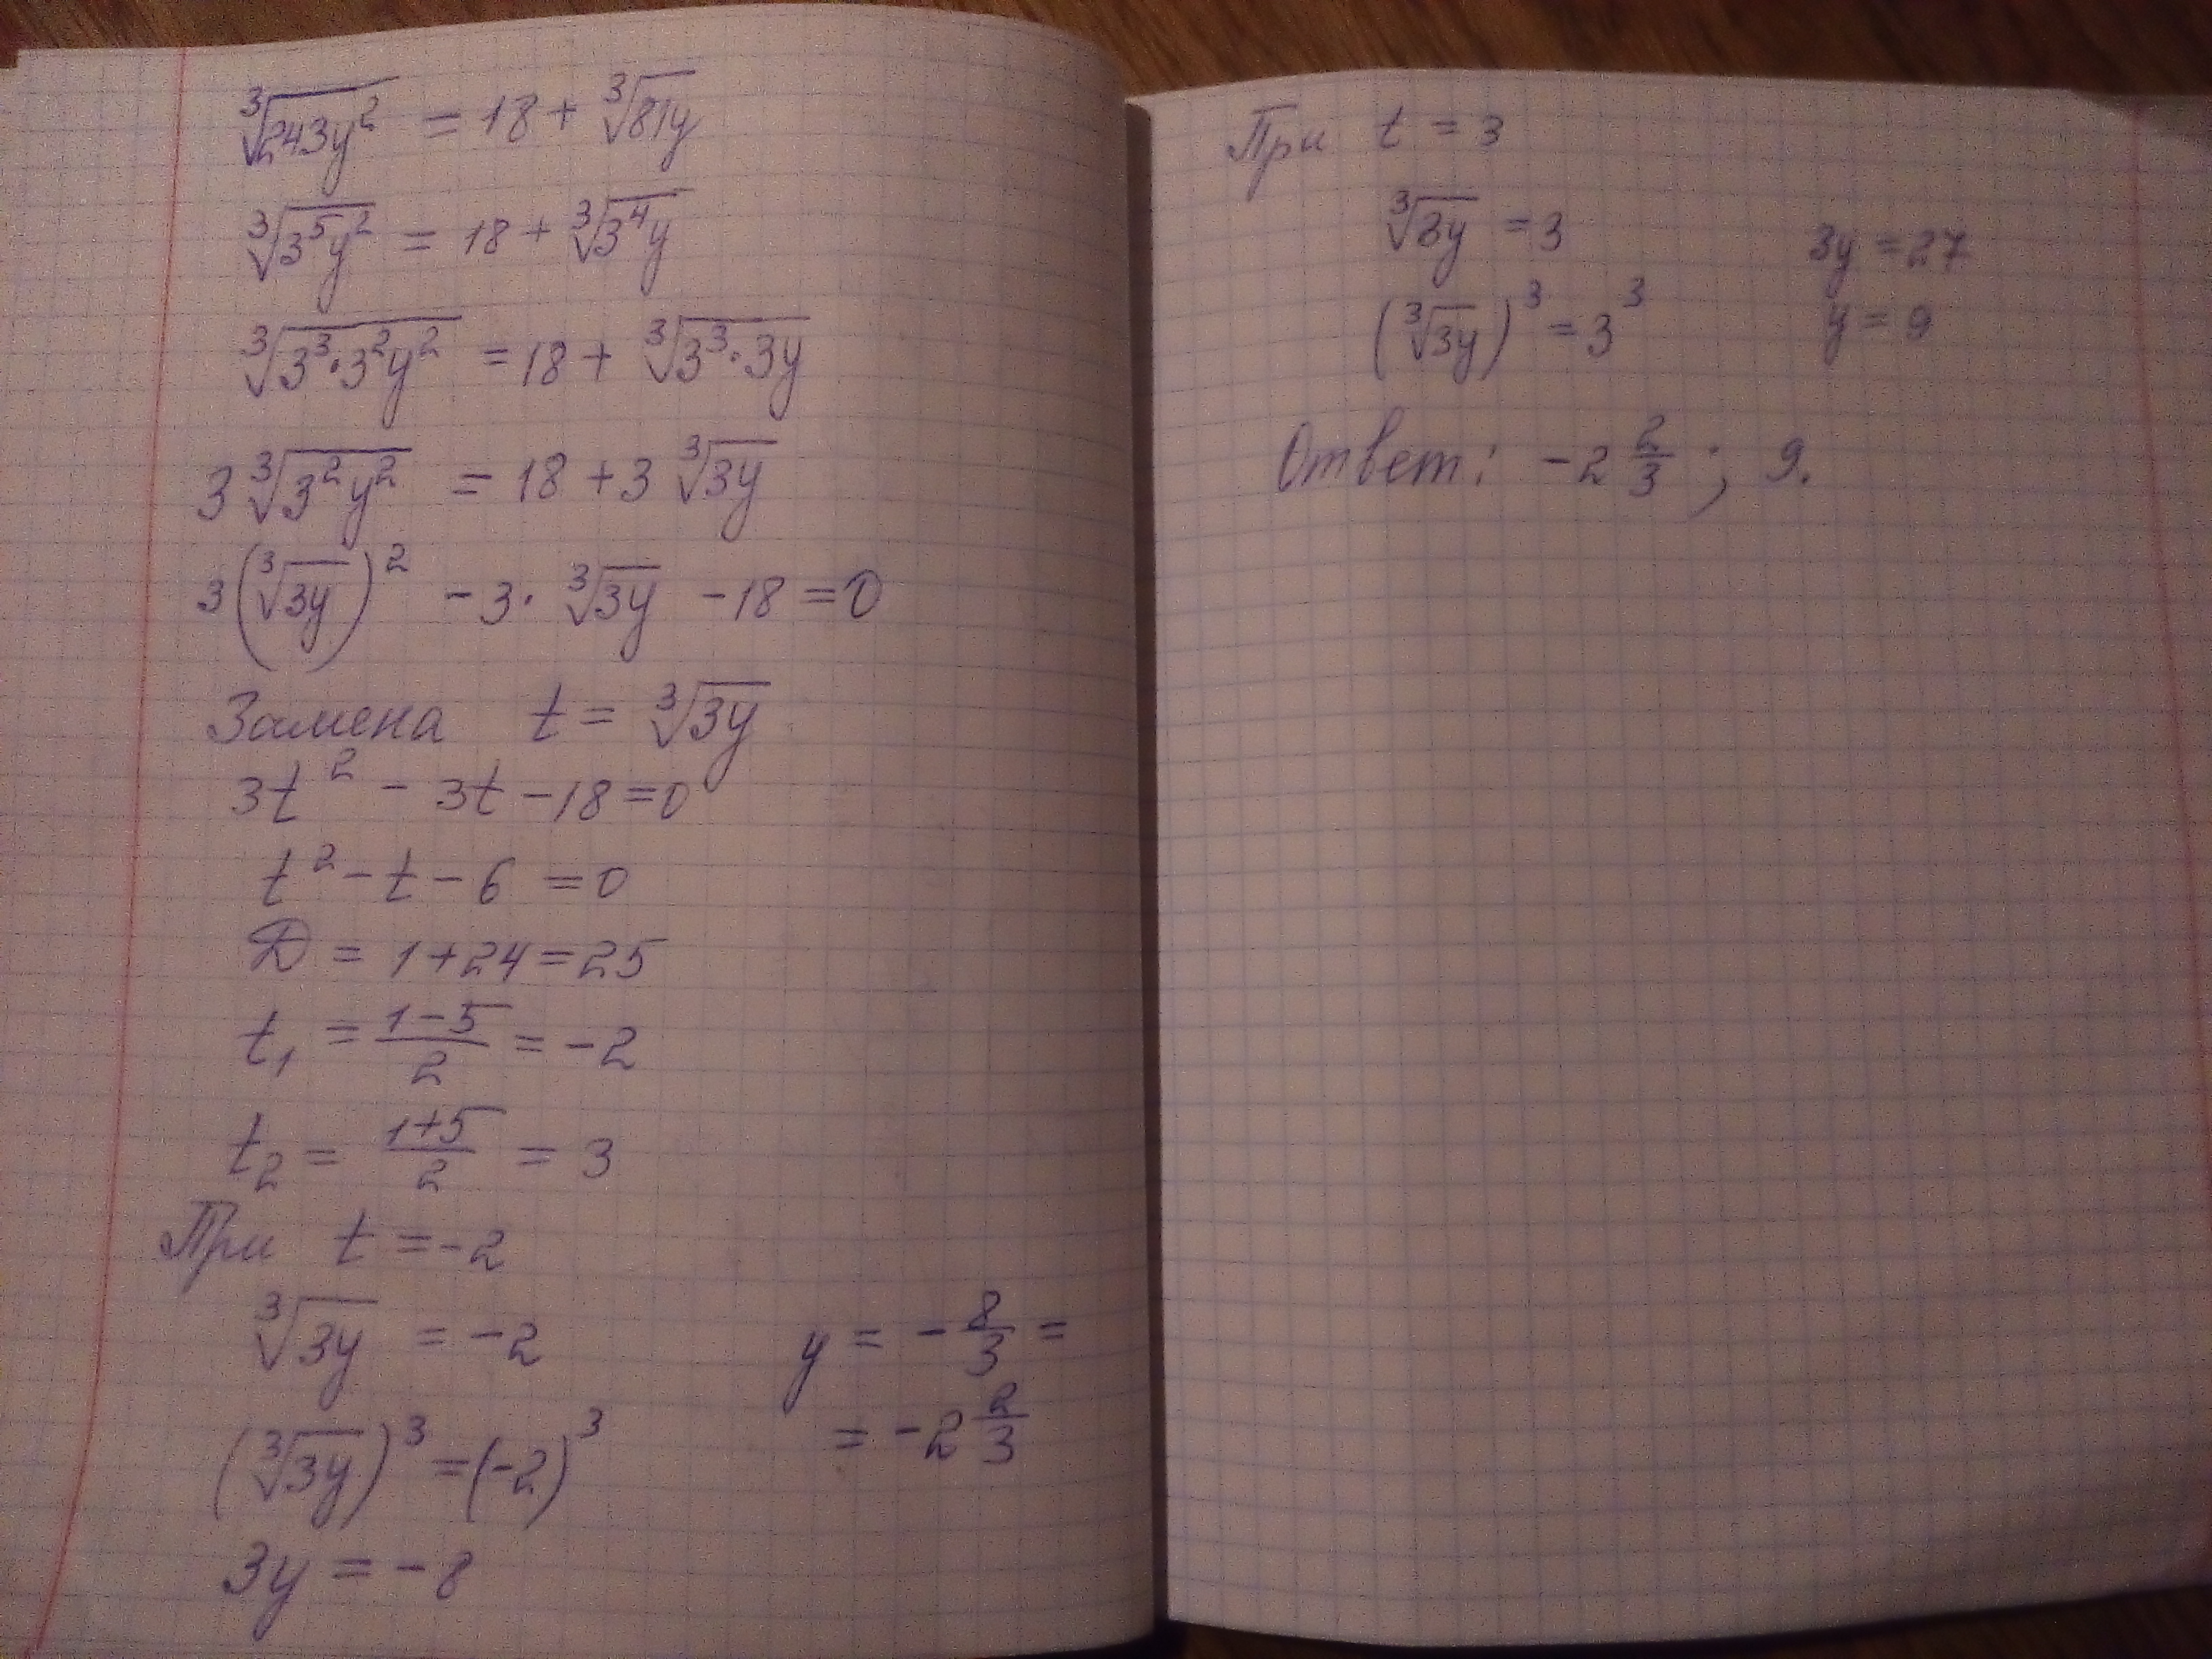 ∛(243y²) = 18 + ∛(81y)
∛(3⁵y²) = 18 + ∛(3⁴y)
∛(3³·3²y²) = 18 + ∛(3³·3y)
3∛(3²y²) = 18 + 3∛(3y)
3(∛(3y))² - 3·∛(3y) - 18 = 0
Замена t = ∛(3y)
3t² - 3t - 18 = 0
t² - t - 6 = 0
D = 1 + 24 = 25
t₁ = (1-5)/2 = -2
t₂ = (1+5)/2 = 3
При t = -2
∛(3y) = -2
(∛(3y))³ = (-2)³
3y = -8
y = -8/3 =
= -2 2/3
При t = 3
∛(3y) = 3
(∛(3y))³ = 3³
3y = 27
y = 9
Ответ: -2 2/3 ; 9.